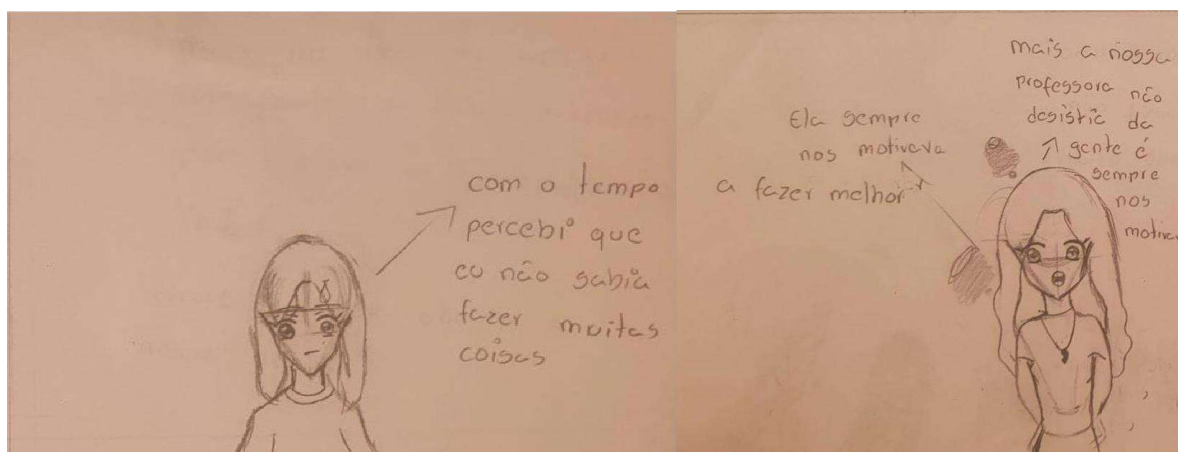 com o tempo
percebi que
eu não sabia
fazer muitas
coisas
Ela sempre
nos motivava
a fazer melhor
mais a nossa
professora não
desistia da
gente é
sempre
nos
motiva